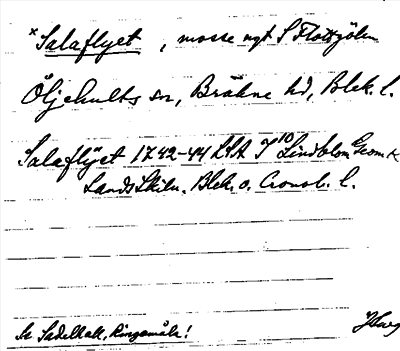 ×Salaflyet, mosse nyt S Flottgölen
Öljehults sn, Bräkne hd, Blek. l.
Salaflÿet 1742-44 LSA I 10 Lindblom Geom. k
Lands Skiln. Blek. o. Cronob. l.
Se Sadelhall, Ringamåla!